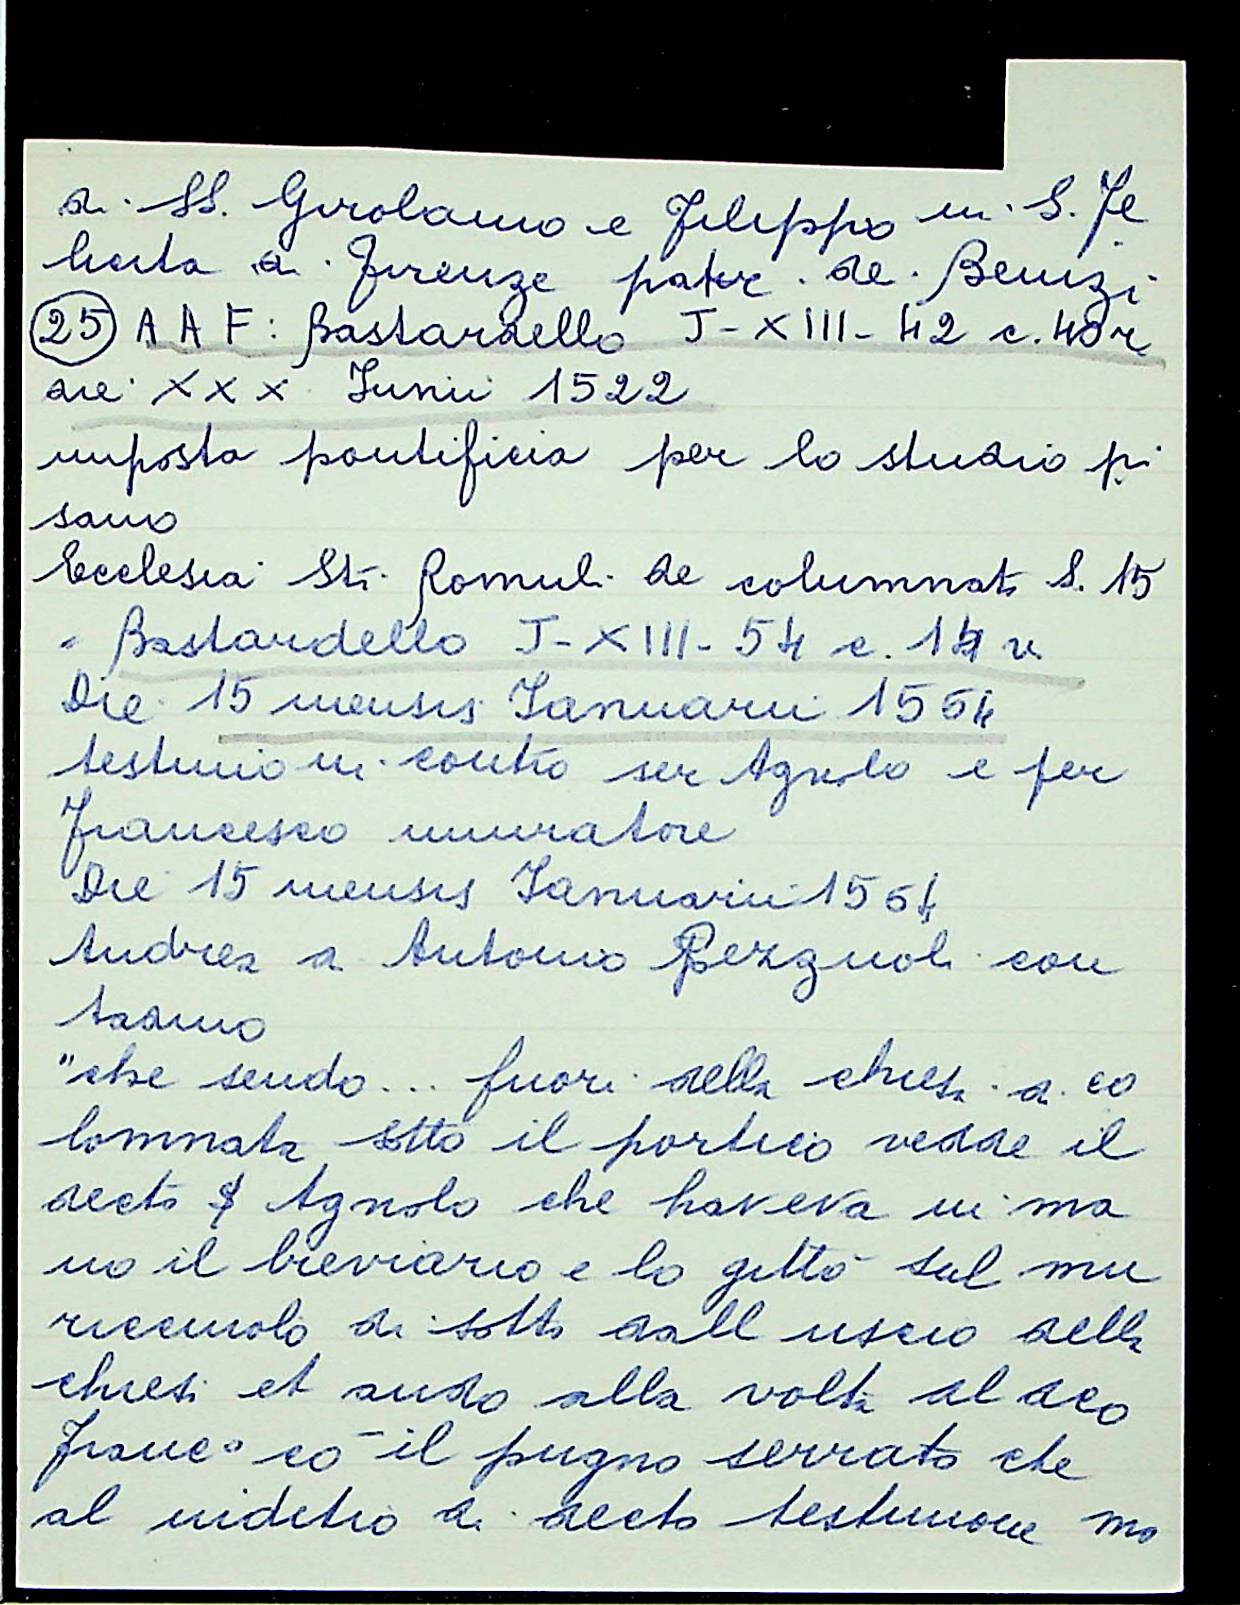 di SS. Girolamo e Filippo in S. Fe
licita di Firenze patr. de Benizi
(25) A A F: Bastardello J-XIII-42 c. 40r
die XXX Junii 1522
imposta pontificia per lo studio pi
sano
Ecclesia Sti. Romuli de columnata S. 15
- Bastardello J-XIII-54 c. 14 v.
Die 15 mensis Januarii 1564
testimoni contro ser Agnolo e per
Francesco muratore
Die 15 mensis Januarii 1564
Andrea di Antonio con
tadino
"che sendo... fuori della chiesa di co
lomnata sotto il portico vedde il
decto S Agnolo che haveva in ma
no il breviario e lo gittò sul mu
ricciuolo di sotto dall uscio della
chiesa et andò alla volta al dco
Franc° cō il pugno serrato che
al indietro di decto testimone mo